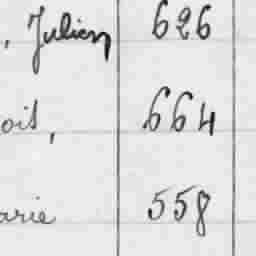 , Julien 626
oit, 664
arie 558